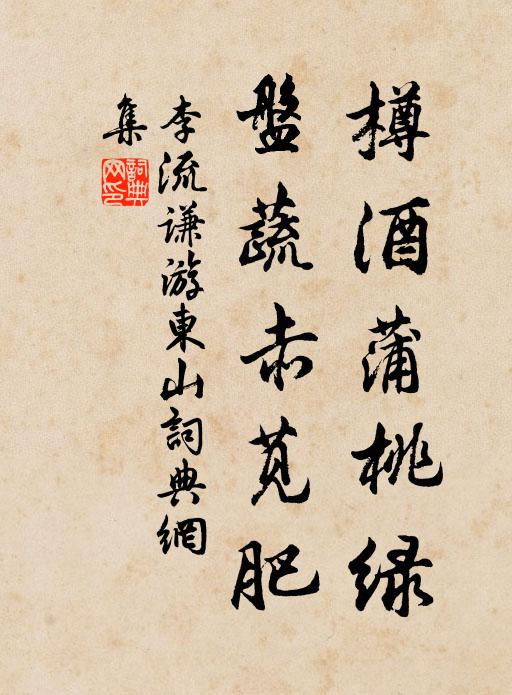 樽酒蒲桃緑
盤蔬赤莧肥
李流謙游東山詞典網
集
詞典
网印